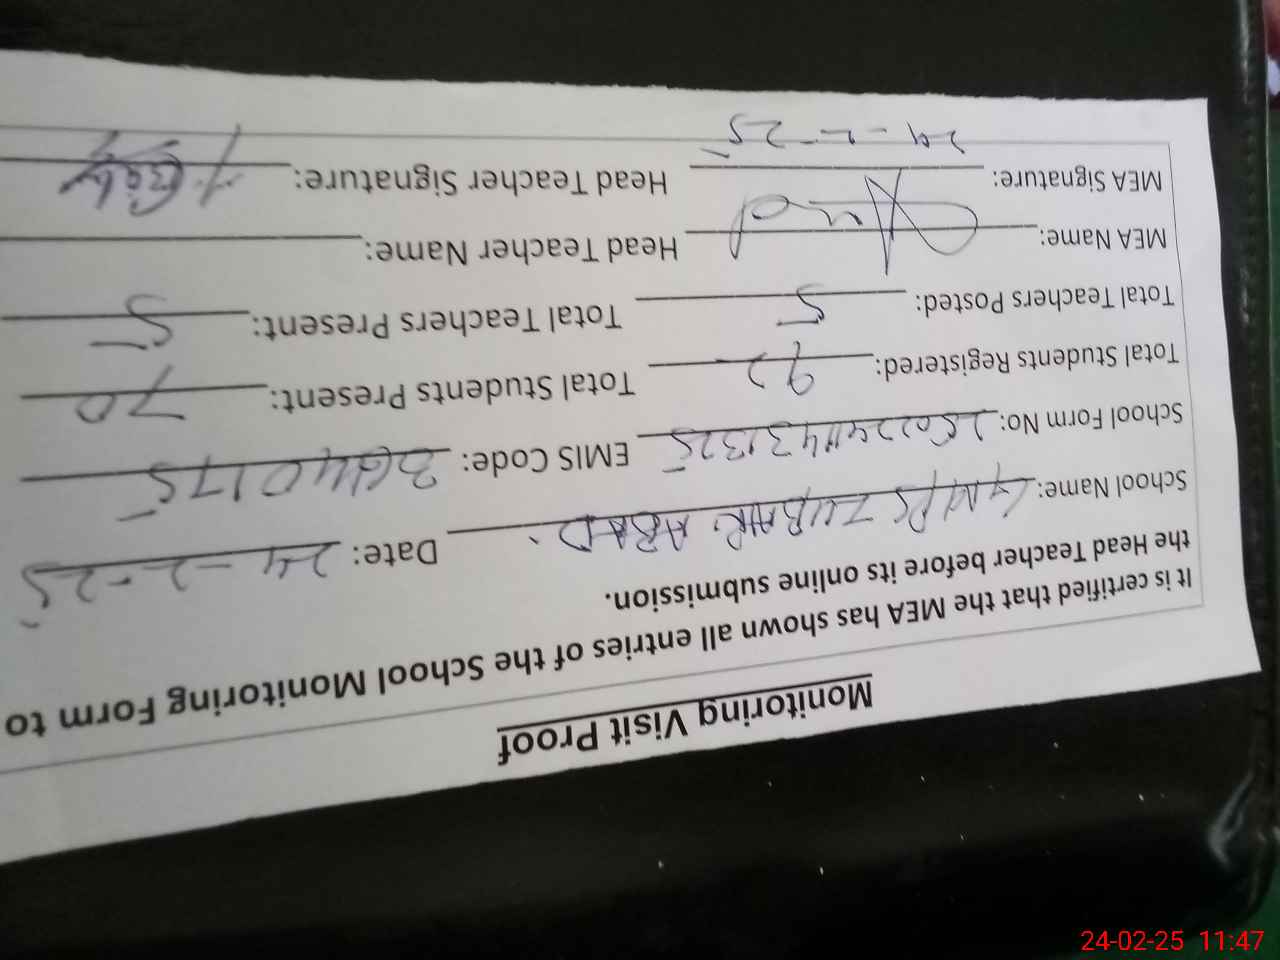 Monitoring Visit Proof
It is certified that the MEA has shown all entries of the School Monitoring Form to
the Head Teacher before its online submission.
School Name: GMPS ZUBAIR ABAD. Date: 24-2-25
School Form No: EMIS Code:
Total Students Registered: 92 Total Students Present: 70
Total Teachers Posted: 5 Total Teachers Present: 5
MEA Name: Head Teacher Name:
MEA Signature: Head Teacher Signature:
24-2-25
24-02-25 11:47